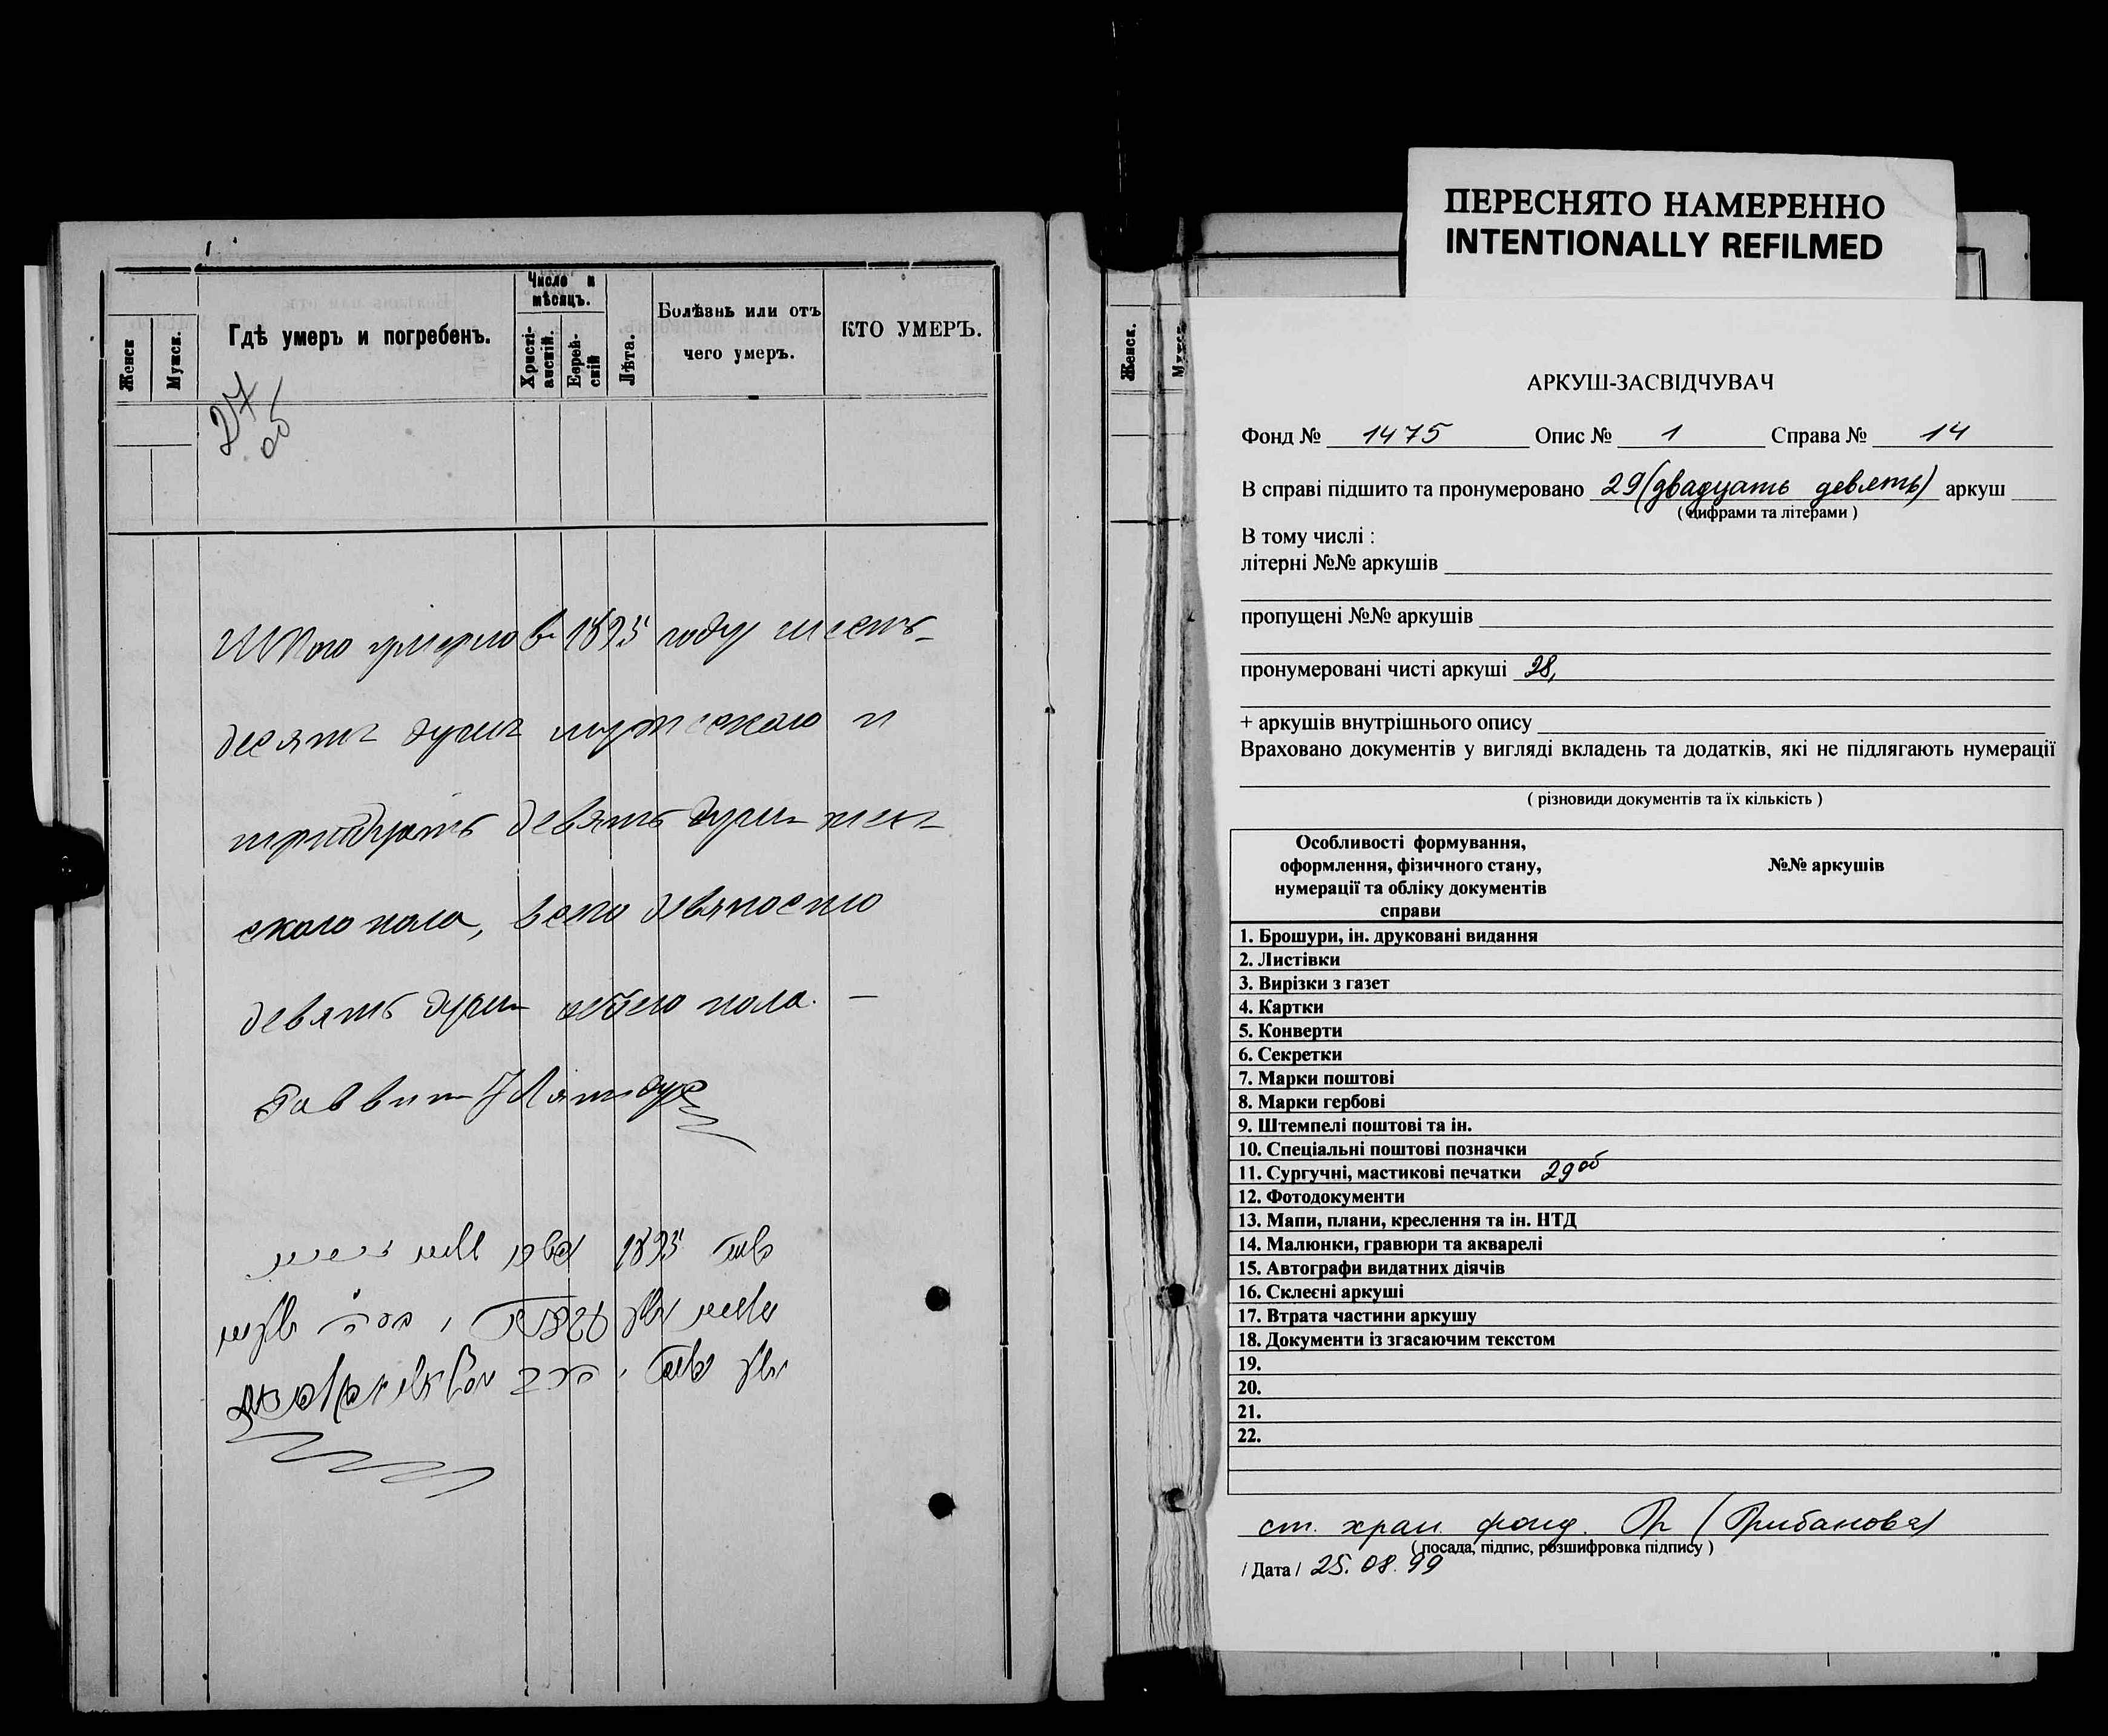 Женск
Мужск.
Гдѣ умеръ и погребенъ.
Число и мѣсяцъ.
Христі-анскій.
Еврей-скій
Лѣта.
Болѣзнь или отъ чего умеръ.
КТО УМЕРЪ.
27
об
Итого умерло въ 1895 году шесть-
десятъ душъ мужескаго и
тридцать девять душъ жен-
скаго пола, всего девяносто
девять душъ обоего пола. —
Раввин
1895
Женск.
ПЕРЕСНЯТО НАМЕРЕННО
INTENTIONALLY REFILMED
АРКУШ-ЗАСВІДЧУВАЧ
Фонд № 1475 Опис № 1 Справа № 14
В справі підшито та пронумеровано 29 (двадцать девять) аркуш
( цифрами та літерами )
В тому числі :
літерні №№ аркушів
пропущені №№ аркушів
пронумеровані чисті аркуші 28,
+ аркушів внутрішнього опису
Враховано документів у вигляді вкладень та додатків, які не підлягають нумерації
( різновиди документів та їх кількість )
Особливості формування,
оформлення, фізичного стану,
нумерації та обліку документів
справи
№№ аркушів
1. Брошури, ін. друковані видання
2. Листівки
3. Вирізки з газет
4. Картки
5. Конверти
6. Секретки
7. Марки поштові
8. Марки гербові
9. Штемпелі поштові та ін.
10. Спеціальні поштові позначки
11. Сургучні, мастикові печатки 29об
12. Фотодокументи
13. Мапи, плани, креслення та ін. НТД
14. Малюнки, гравюри та акварелі
15. Автографи видатних діячів
16. Склеєні аркуші
17. Втрата частини аркушу
18. Документи із згасаючим текстом
19.
20.
21.
22.
ст. хран. фонд. (Грибанова)
( посада, підпис, розшифровка підпису )
/ Дата / 25.08.99